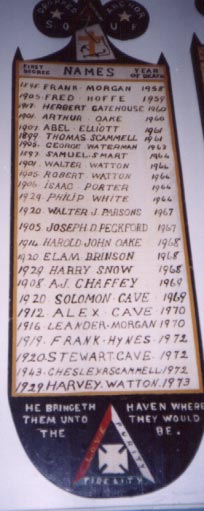 ANCHOR
S O U F
FIRST DEGREE NAMES YEAR OF DEATH
FRANK · MORGAN 1958
1905 · FRED · HOFFE 1959
HERBERT GATEHOUSE 1960
ARTHUR · OAKE 1960
1907 · ABEL · ELLIOTT 1961
1899 THOMAS SCAMMELL 1961
1906 · GEORGE WATERMAN 1963
1897 · SAMUEL SMART 1964
1901 · WALTER · WATTON 1964
1905 · ROBERT · WATTON 1964
1906 · ISAAC · PORTER 1964
1929 · PHILIP · WHITE 1964
1920 · WALTER J PARSONS 1967
1905 · JOSEPH D PECKFORD 1967
1914 · HAROLD · JOHN OAKE 1968
1920 ELAM · BRINSON 1968
1929 HARRY · SNOW 1968
1908 · A.J. CHAFFEY 1969
1920 SOLOMON · CAVE · 1969
1912 ALEX · CAVE 1970
1916 · LEANDER · MORGAN 1970
1919 · FRANK · HYNES 1972
1920 · STEWART · CAVE · 1972
1943 · CHESLEY R SCAMMELL 1972
1929 HARVEY · WATTON · 1973
HE BRINGETH HAVEN WHERE
THEM UNTO THEY WOULD
THE BE ·
LOVE PURITY
FIDELITY